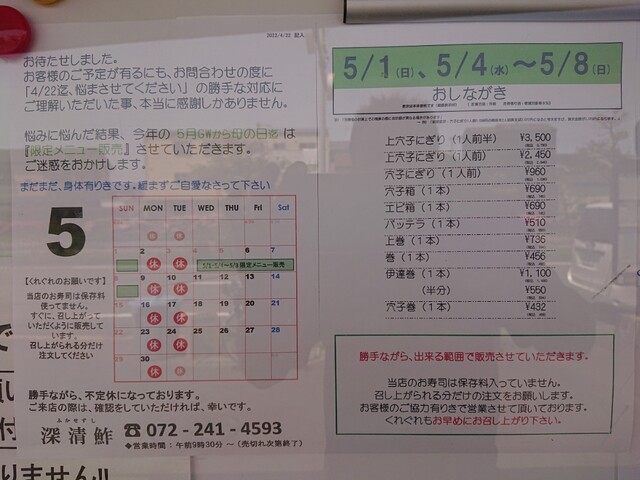 2022/4/22 記入
お待たせしました。
お客様のご予定が有るにも、お問合わせの度に
「4/22迄、悩まさせてください」の勝手な対応に
ご理解いただいた事、本当に感謝しかありません。
悩みに悩んだ結果、今年の 5月GWから母の日迄 は
『限定メニュー販売』させていただきます。
ご迷惑をおかけします。
まだまだ、身体有りきです。緩まずご自愛なさって下さい
5
SUN MON TUE WED THU Fri Sat
休 休
1 2 3 4 5 6 7
休 休 5/1・5/4~5/8 限定メニュー販売
8 9 10 11 12 13 14
休 休
15 16 17 18 19 20 21
休 休
22 23 24 25 26 27 28
休 休
29 30
休
【くれぐれのお願いです】
当店のお寿司は保存料
使ってません。
すぐに、召し上がって
いただくように販売して
います。
召し上がられる分だけ
注文してください
勝手ながら、不定休になっております。
ご来店の際は、確認をしていただければ、幸いです。
ふかせずし
深清鮓 ☎072-241-4593
◆営業時間:午前9時30分~(売切れ次第終了)
5/1(日)、5/4(水)~5/8(日)
おしながき
上穴子にぎり(1人前半) ¥3,500
上穴子にぎり(1人前) ¥2,450
穴子にぎり(1人前) ¥960
穴子箱(1本) ¥690
エビ箱(1本) ¥690
バッテラ(1本) ¥510
上巻(1本) ¥735
巻(1本) ¥456
伊達巻(1本) ¥1,100
(半分) ¥550
穴子巻(1本) ¥432
勝手ながら、出来る範囲で販売させていただきます。
当店のお寿司は保存料入っていません。
召し上がられる分だけの注文をお願いします。
お客様のご協力有りきで営業させて頂いております。
くれぐれもお早めにお召し上がり下さい。
で
願い
付
りません!!